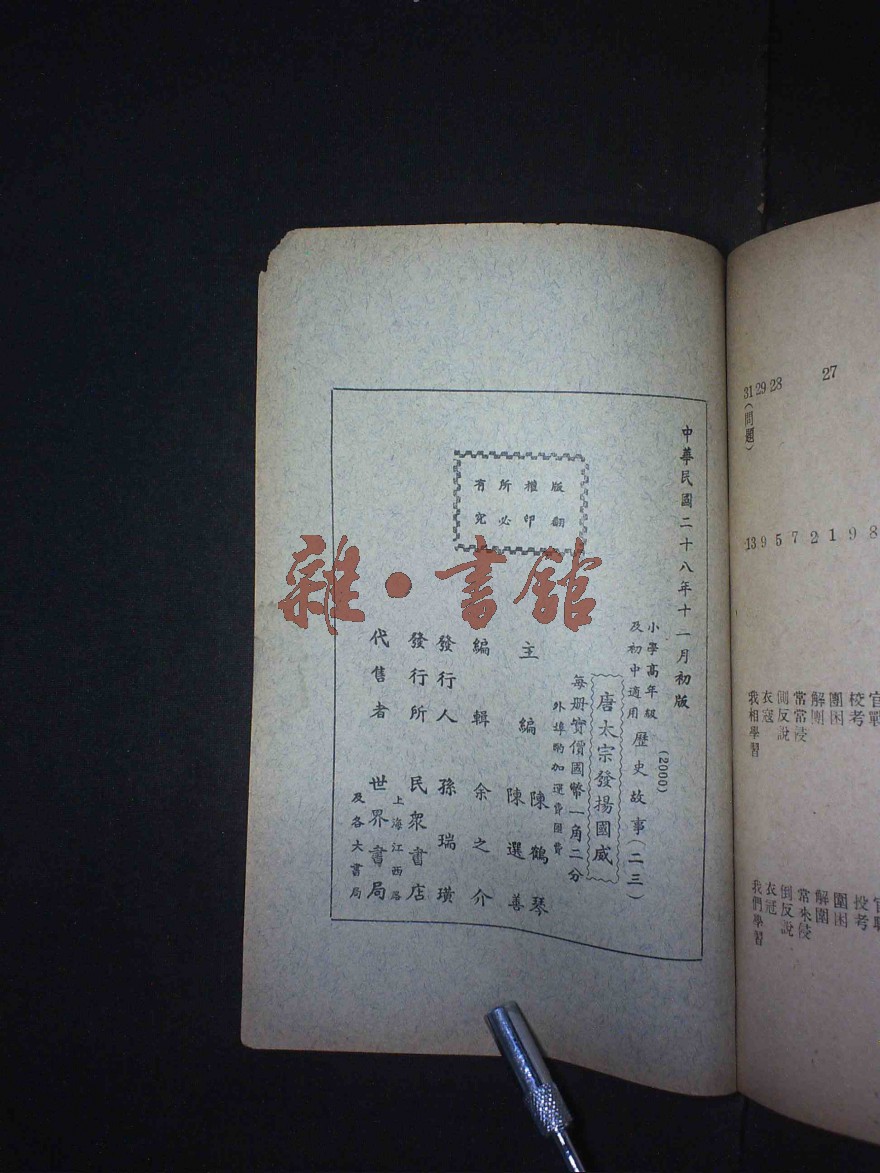 中華民國二十八年十一月初版
(2000)
小學高年級
及初中適用
歷史故事(二三)
唐太宗發揚國威
每册實價國幣一角二分
外埠酌加運費匯費
主編 陳鶴琴
陳選善
編輯 余之介
發行人 孫瑞璜
發行所 民衆書店
上海江西路
代售者 世界書局
及各大書局
版權所有
翻印必究
雜·書館
27
28
29
31(問題)
8
9
1
2
7
5
9
13
官戰
校考
團困
解團
常常侵
側反說
衣寇
我相學習
官戰
投考
圍困
解圍
常來侵
倒反說
衣冠
我們學習